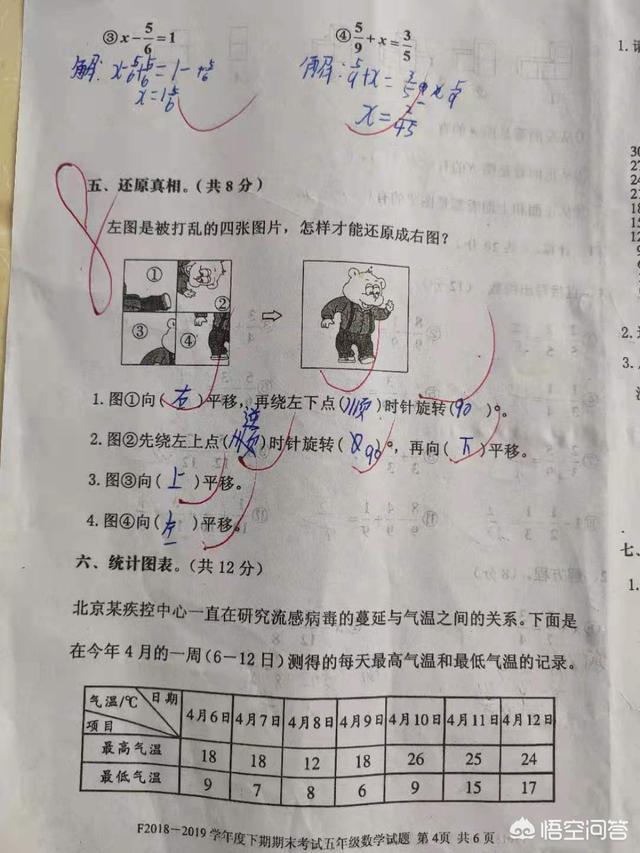 ③ x - 5/6 = 1 ④ 5/9 + x = 3/5
解: x - 5/6 + 5/6 = 1 - + 5/6 解: 5/9 + x = 3/5 5/9
x = 1 5/6 x = 2/45
8
五、还原真相。(共8分)
左图是被打乱的四张图片，怎样才能还原成右图？
① ②
③ ④ ⇨
1. 图①向( 右 )平移，再绕左下点( 顺 )时针旋转( 90 )°。
2. 图②先绕左上点( 逆 )时针旋转( 90 )°，再向( 下 )平移。
3. 图③向( 上 )平移。
4. 图④向( 左 )平移。
六、统计图表。(共12分)
北京某疾控中心一直在研究流感病毒的蔓延与气温之间的关系。下面是
在今年4月的一周(6－12日)测得的每天最高气温和最低气温的记录。
气温/℃ 日期 项目 4月6日 4月7日 4月8日 4月9日 4月10日 4月11日 4月12日
最高气温 18 18 12 18 26 25 24
最低气温 9 7 8 6 9 15 17
F2018－2019学年度下期期末考试五年级数学试题 第4页 共6页
悟空问答
1.
30
27
24
21
18
15
12
9
6
3
2.
3.
七、
1.